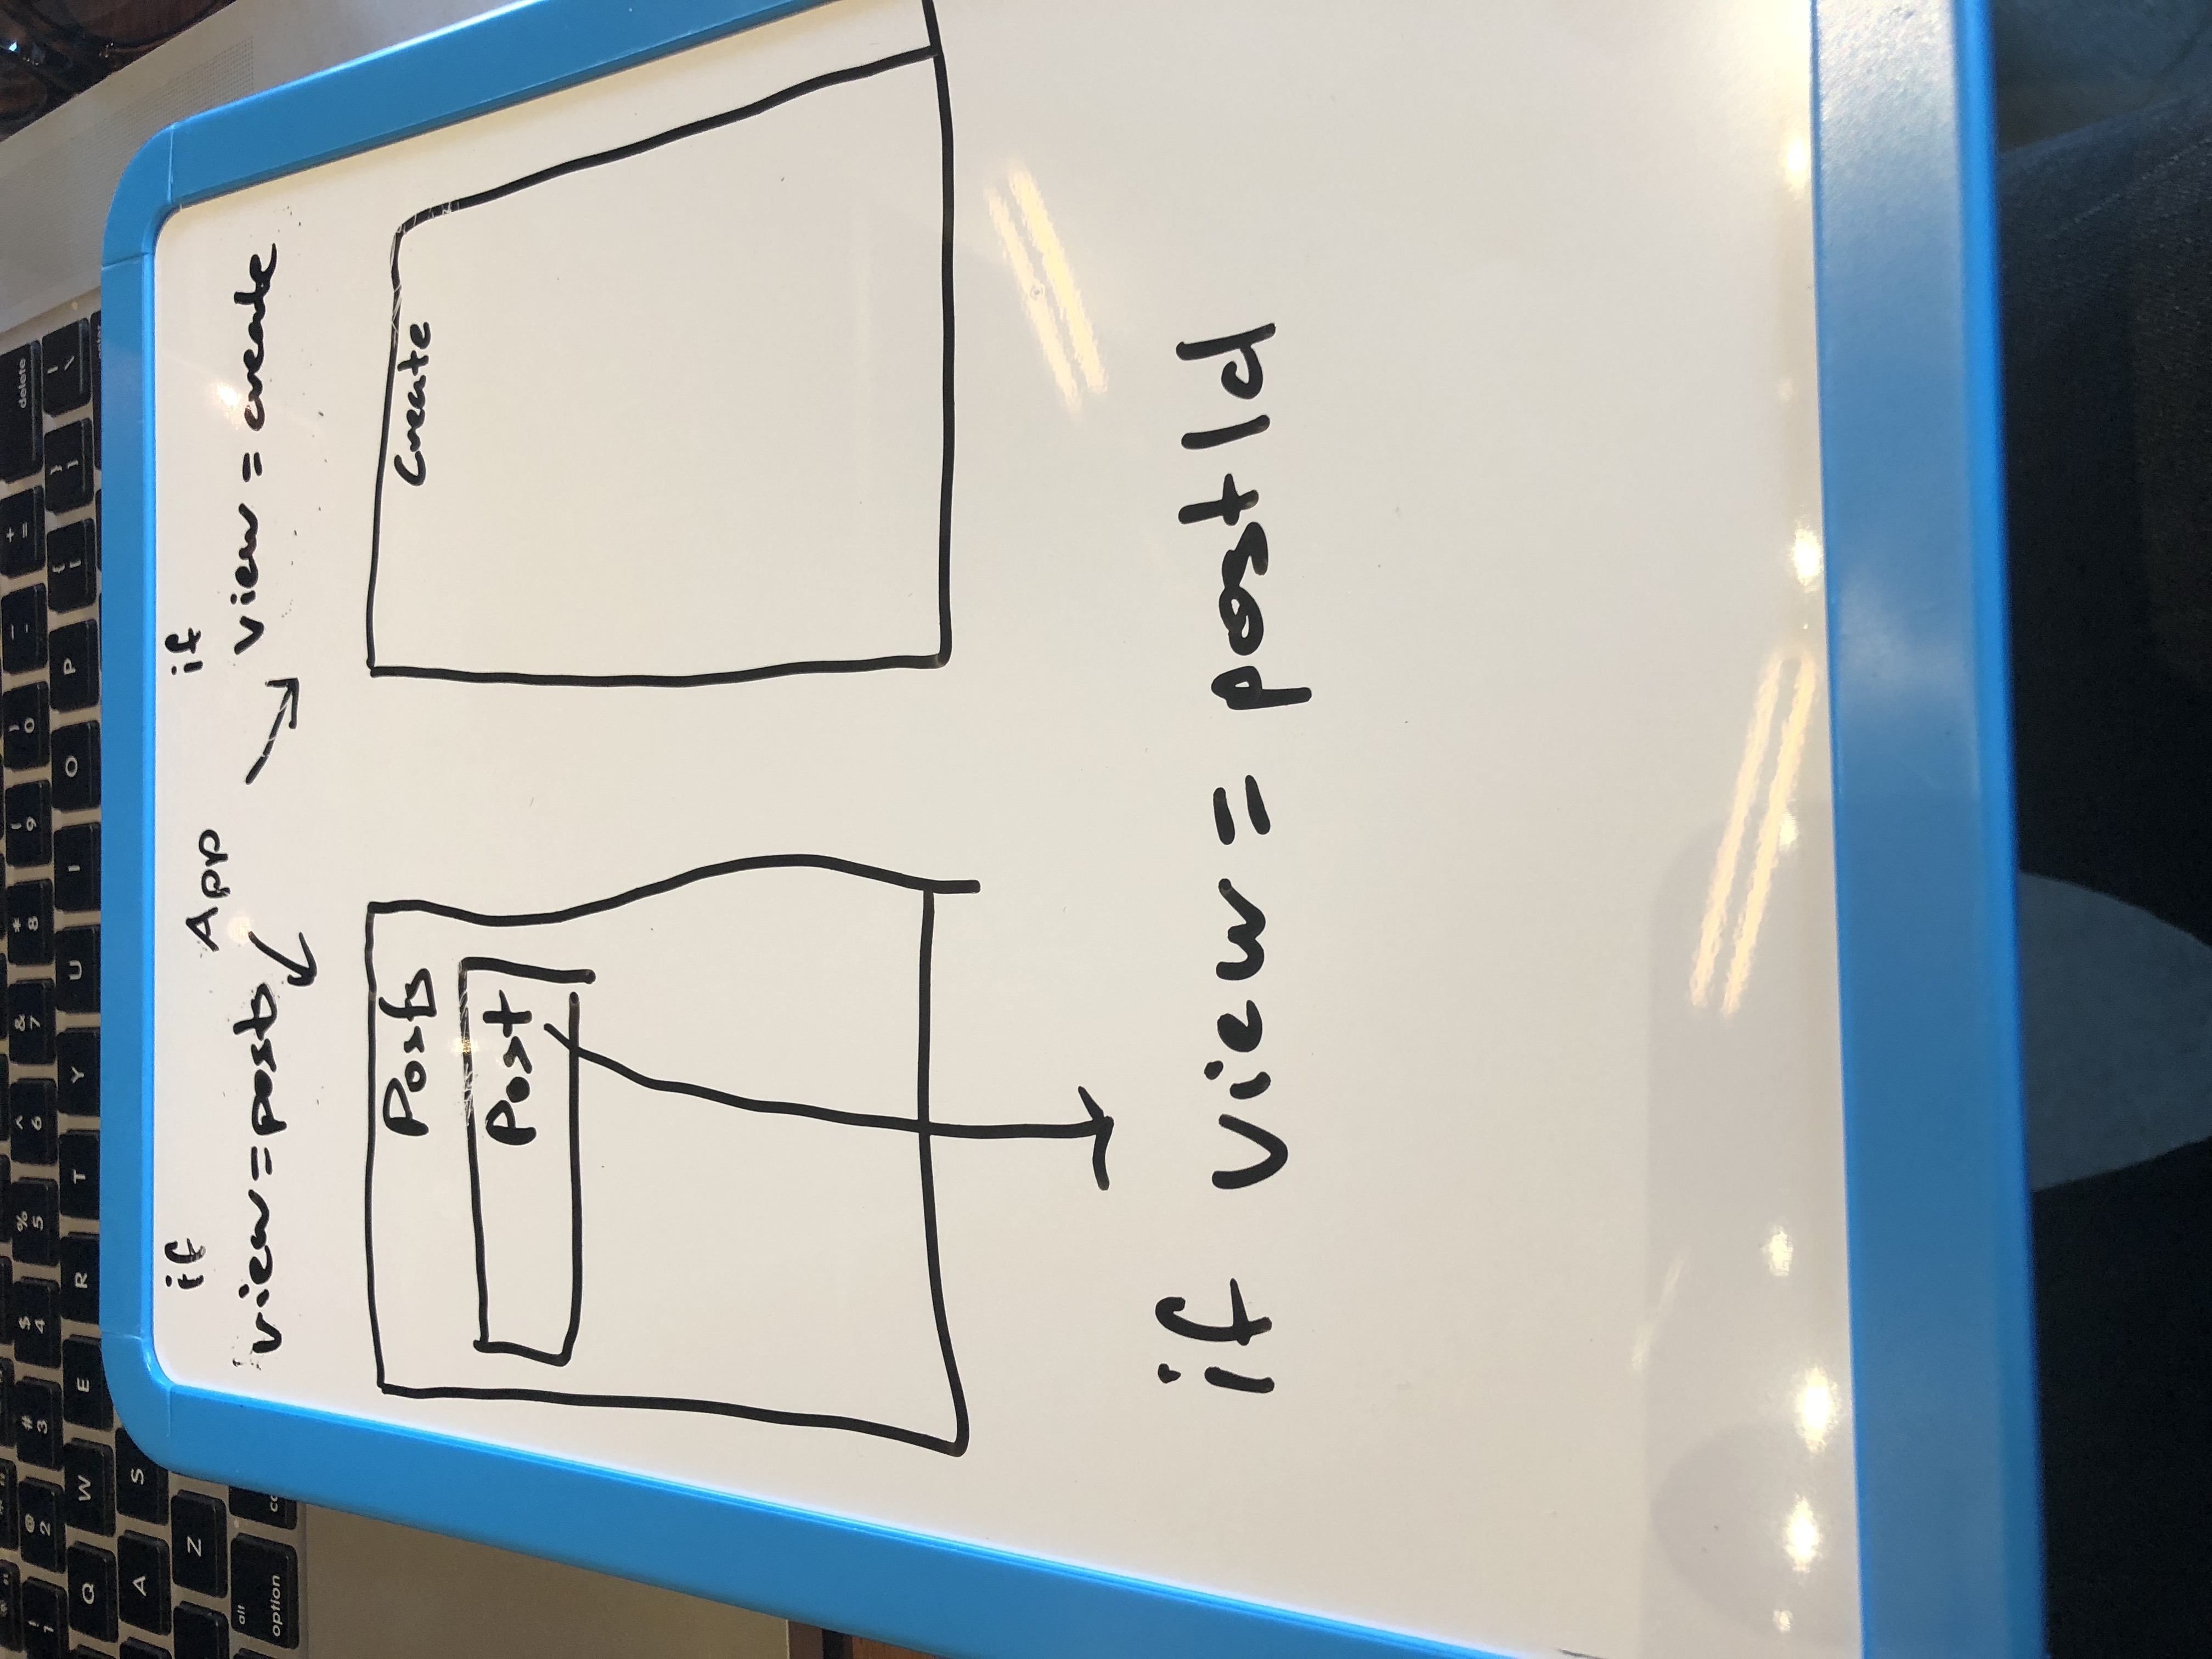 ! @ # $ % ^ & * ( ) _ +
1 2 3 4 5 6 7 8 9 0 - = delete
Q W E R T Y U I O P { [ } ] | \
A S
Z
alt
option
if
view=posts
App
if
view = create
Posts
Post
Create
if view = postId